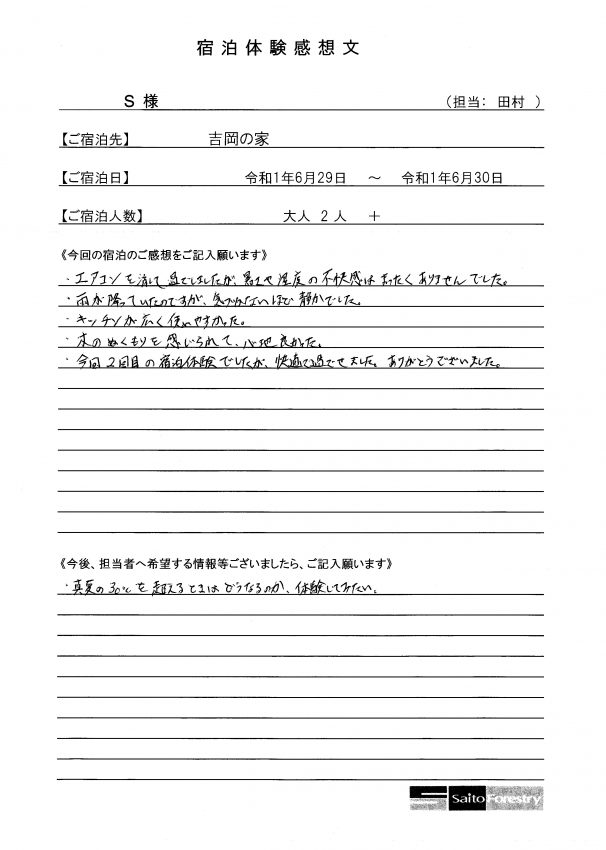 宿泊体験感想文
S 様 （担当： 田村 ）
【ご宿泊先】 吉岡の家
【ご宿泊日】 令和1年6月29日 ～ 令和1年6月30日
【ご宿泊人数】 大人 2 人 ＋
《今回の宿泊のご感想をご記入願います》
・エアコンを消して過ごしましたが、暑さや湿度の不快感はまったくありませんでした。
・雨が降っていたのですが、気づかないほど静かでした。
・キッチンが広く使いやすかった。
・木のぬくもりを感じられて、心地良かった。
・今回2回目の宿泊体験でしたが、快適で過ごせました。ありがとうございました。
《今後、担当者へ希望する情報等ございましたら、ご記入願います》
・真夏の30℃を超えるときはどうなるのか、体験してみたい。
Saito Forestry